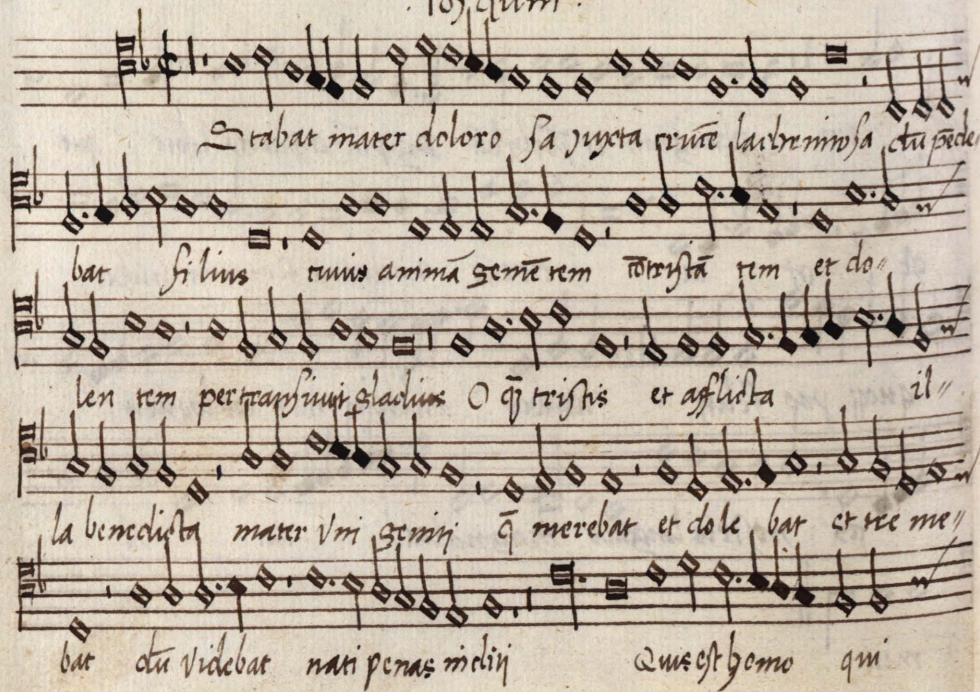 Josquin.
Stabat mater doloro sa Juxta crucē lachrimosa dū pēde
bat filius cuius animā gemētem cōtristā tem et do
len tem pertransivit gladius O q̄ tristis et afflicta il
la benedicta mater Vni geniti q̄ merebat et dole bat et tre me
bat dū videbat nati penas incliti Quis est homo qui